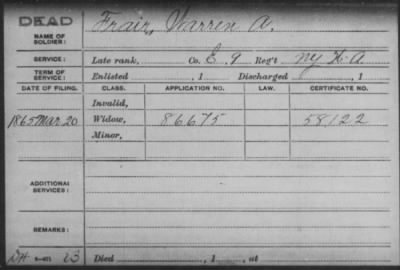 DEAD
NAME OF SOLDIER: Frair, Warren A.
SERVICE: Late rank, Co. E. 9 Reg't NY H A
TERM OF SERVICE: Enlisted , 1 Discharged , 1
DATE OF FILING. CLASS. APPLICATION NO. LAW. CERTIFICATE NO.
Invalid,
1865 Mar 20 Widow, 86675 58122
Minor,
ADDITIONAL SERVICES:
REMARKS:
Died , 1 , at